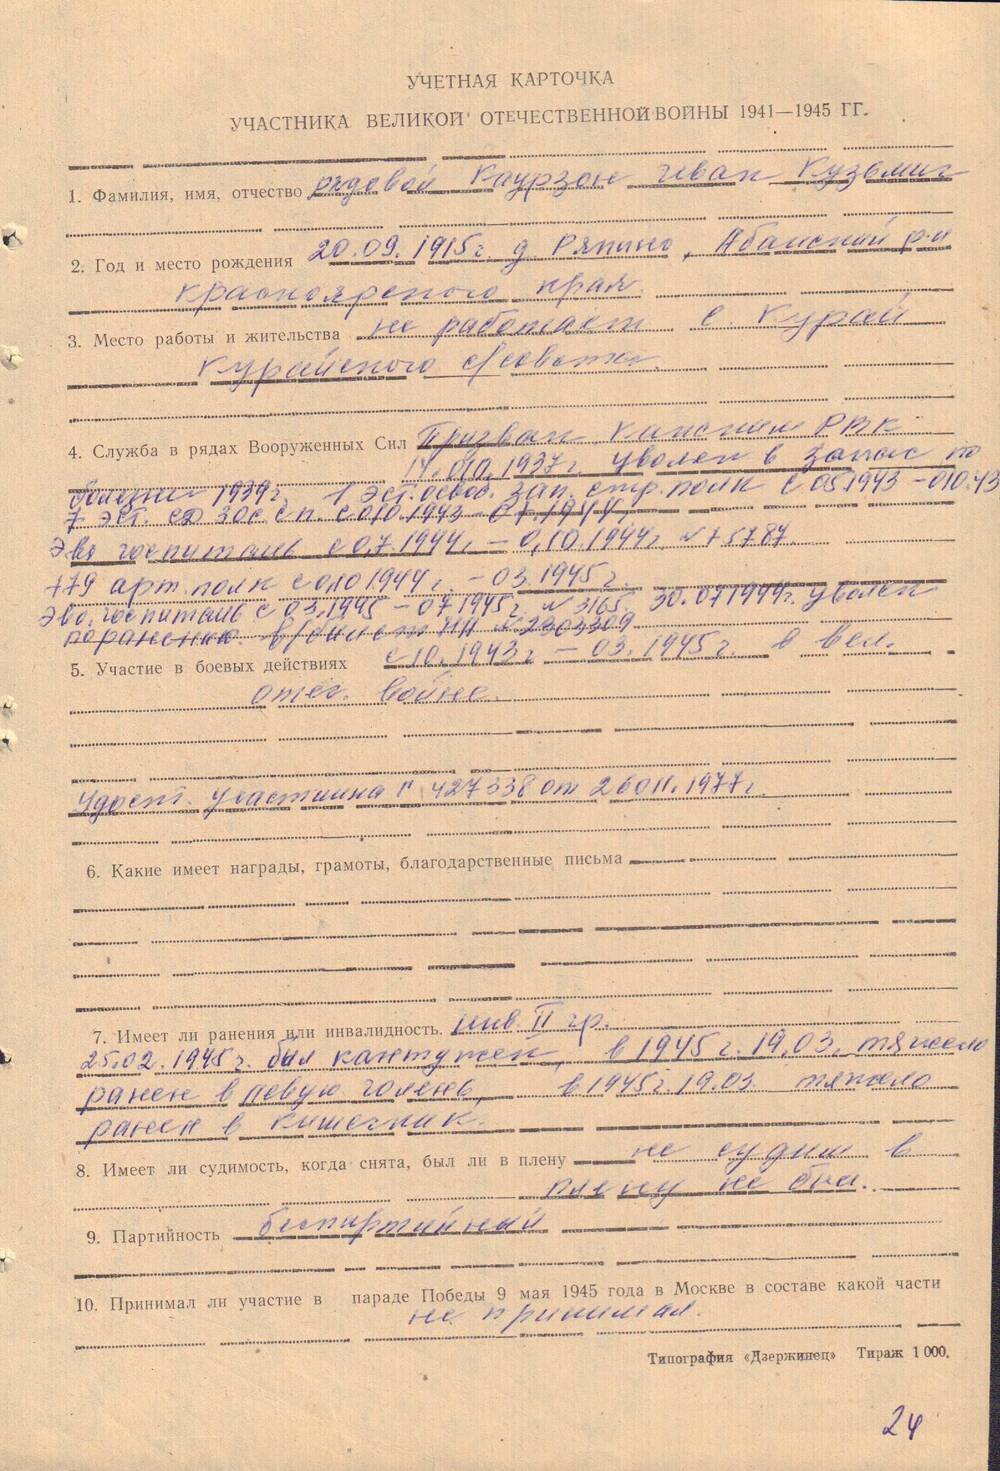 УЧЕТНАЯ КАРТОЧКА
УЧАСТНИКА ВЕЛИКОЙ ОТЕЧЕСТВЕННОЙ ВОЙНЫ 1941—1945 ГГ.
1. Фамилия, имя, отчество рядовой Каурзон Иван Кузьмич
2. Год и место рождения 20.09.1915г. д Ряпино, Абанский р-н
Красноярского края
3. Место работы и жительства не работает с. Курай
Курайского с/совета.
4. Служба в рядах Вооруженных Сил Призван Канским РВК
1937г. уволен в запас по
болезни 1939г. 1 эст. зап. стр. полк с 05.1943 – 010.43
7 эст. сд 300 сп. с 010.1943 – 07.1944г.
Эва госпиталь с 0,7.1944г. – 0,10.1944г. №1 5787.
779 арт. полк с 010 1944г. – 03.1945г.
Эва. госпиталь с 03.1945 – 07 1945г. № 3165. 30.07 1944г. уволен
по ранению в/билет НН № 2303309
5. Участие в боевых действиях с 10.1943г – 03.1945г. в вел.
отеч. войне.
Удост. участника 427338 от 26011.1977г.
6. Какие имеет награды, грамоты, благодарственные письма
7. Имеет ли ранения или инвалидность. инв. II гр.
25.02.1945г. был контужен, в 1945г. 19.03. тяжело
ранен в левую голень, в 1945г. 19.03 тяжело
ранен в кишечник.
8. Имеет ли судимость, когда снята, был ли в плену не судим в
плену не был.
9. Партийность беспартийный
10. Принимал ли участие в параде Победы 9 мая 1945 года в Москве в составе какой части
не принимал.
Типография «Дзержинец» Тираж 1 000.
24